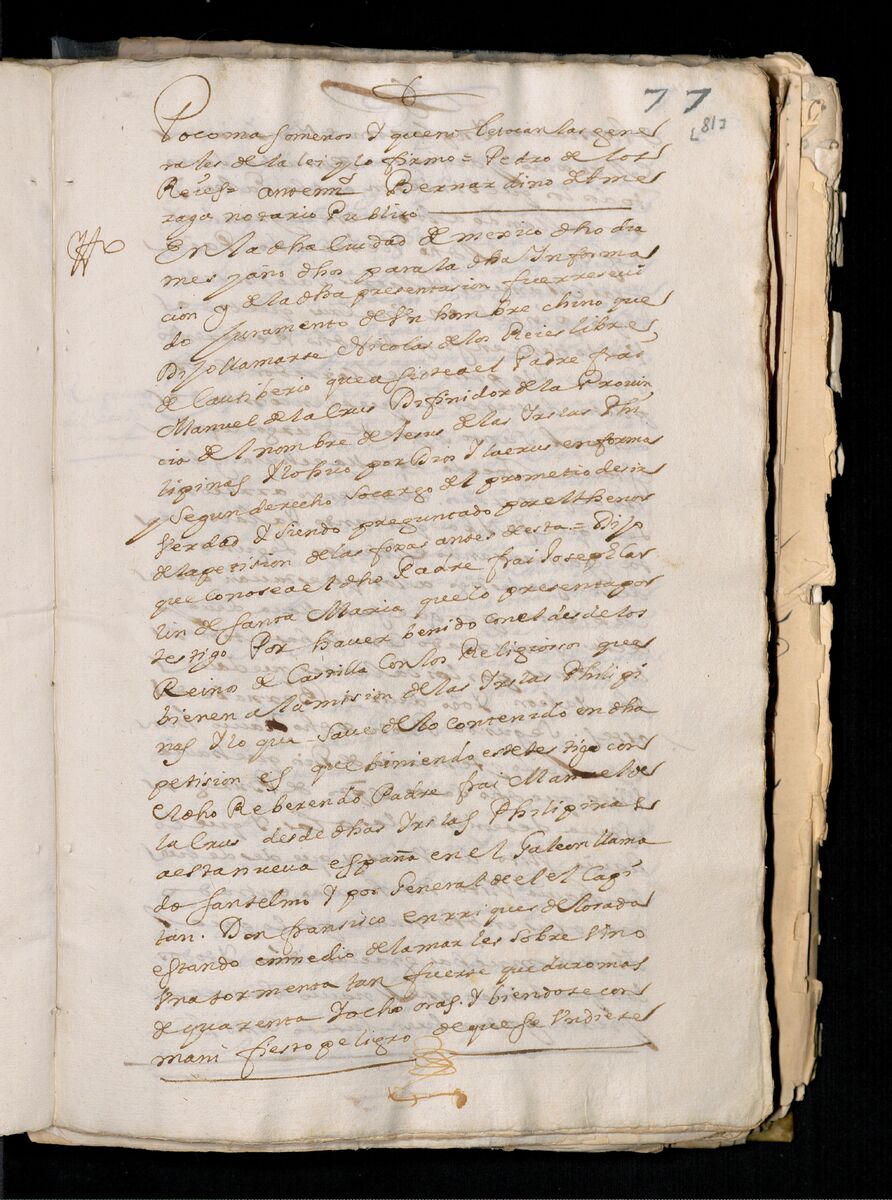 77
[81]
Poco mas o menos Y que no le tocan las gene
rales de la lei y lo firmo = Pedro de los
Reies = antemi Bernardino de Ame
zaga notario Publico
En la dha Ciudad de mexico dho dia
mes y año dhos para la dha Informa
cion y de la dha presentasion fue rreseui
do Juramento de Vn hombre chino que
Dijo llamarse Nicolas de los Reies libre
de Cautiberio que asiste a el Padre frai
Manuel de la Crus Difinidor de la Provin
cia de l nombre de Jesus de las Yslas Phi
lipinas Y lo hiço por Dios Y la crus en forma
y Segun derecho So cargo de l prometio desir
Verdad Y Siendo preguntado por el thenor
de la petision de las foxas antes desta = Dijo
que Conose a el dho Padre frai Joseph Cas
lin de Santa Maria que lo presenta por
testigo Por hauer benido con el desde los
Reinos de Castilla Con los Religiosos que
bienen a la mision de las Yslas Philipi
nas Y lo que Saue de lo Contenido en dha
petision es que biniendo este testigo con
el dho Reberendo Padre frai Manuel de
la Crus desde dhas Yslas Philipinas
a esta nueva españa en el Galeon llama
do Santelmo Y por General de el el Capi
tan. Don fransisco enrriques de losada
estando enmedio de la mar les sobre Vino
Vna tormenta tan fuerte que duro mas
de quarenta Y ocho oras. Y biendose con
manifiesto peligro de que se Vndiese